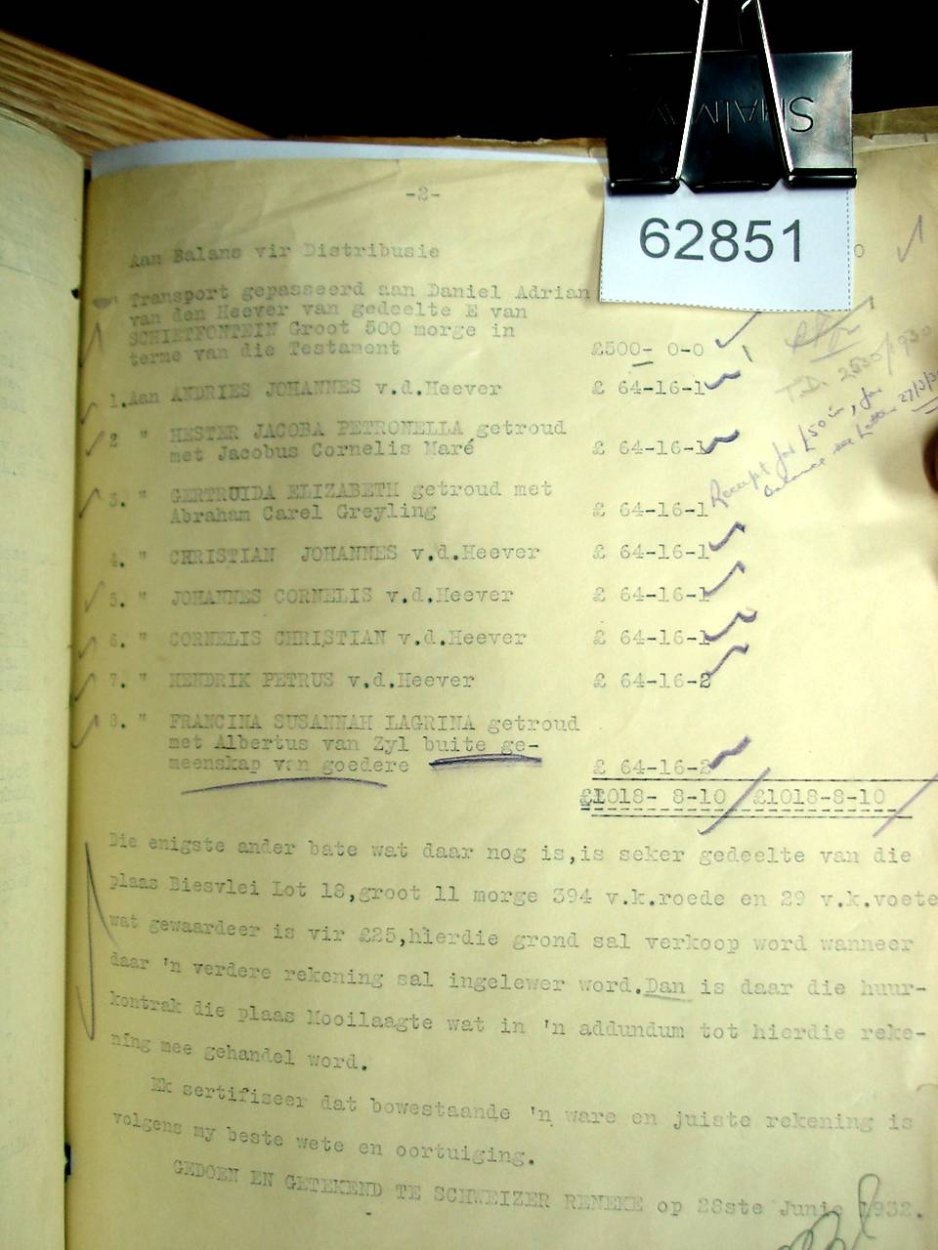 SHALMAY
62851
-2-
Aan Balans vir Distribusie
0
Transport gepasseerd aan Daniel Adrian
van den Heever van gedeelte E van
SCHIETFONTEIN Groot 500 morge in
terme van die Testament £500- 0-0
T.D. 2530/1930
1.Aan ANDRIES JOHANNES v.d.Heever £ 64-16-1
2 " HESTER JACOBA PETRONELLA getroud
met Jacobus Cornelis Maré £ 64-16-1
Receipt for £50 in, for
balance see letter 27/3/
3. " GERTRUIDA ELIZABETH getroud met
Abraham Carel Greyling £ 64-16-1
4. " CHRISTIAN JOHANNES v.d.Heever £ 64-16-1
5. " JOHANNES CORNELIS v.d.Heever £ 64-16-1
6. " CORNELIS CHRISTIAN v.d.Heever £ 64-16-1
7. " HENDRIK PETRUS v.d.Heever £ 64-16-2
8. " FRANCINA SUSANNAH LAGRINA getroud
met Albertus van Zyl buite ge-
meenskap van goedere £ 64-16-2
£1018- 8-10 £1018-8-10
Die enigste ander bate wat daar nog is,is seker gedeelte van die
plaas Biesvlei Lot 18,groot 11 morge 394 v.k.roede en 29 v.k.voete
wat gewaardeer is vir £25,hierdie grond sal verkoop word wanneer
daar 'n verdere rekening sal ingelewer word.Dan is daar die huur-
kontrak die plaas Mooilaagte wat in 'n addundum tot hierdie reke-
ning mee gehandel word.
Ek sertifiseer dat bowestaande 'n ware en juiste rekening is
volgens my beste wete en oortuiging.
GEDOEN EN GETEKEND TE SCHWEIZER RENEKE op 28ste Junie 1932.